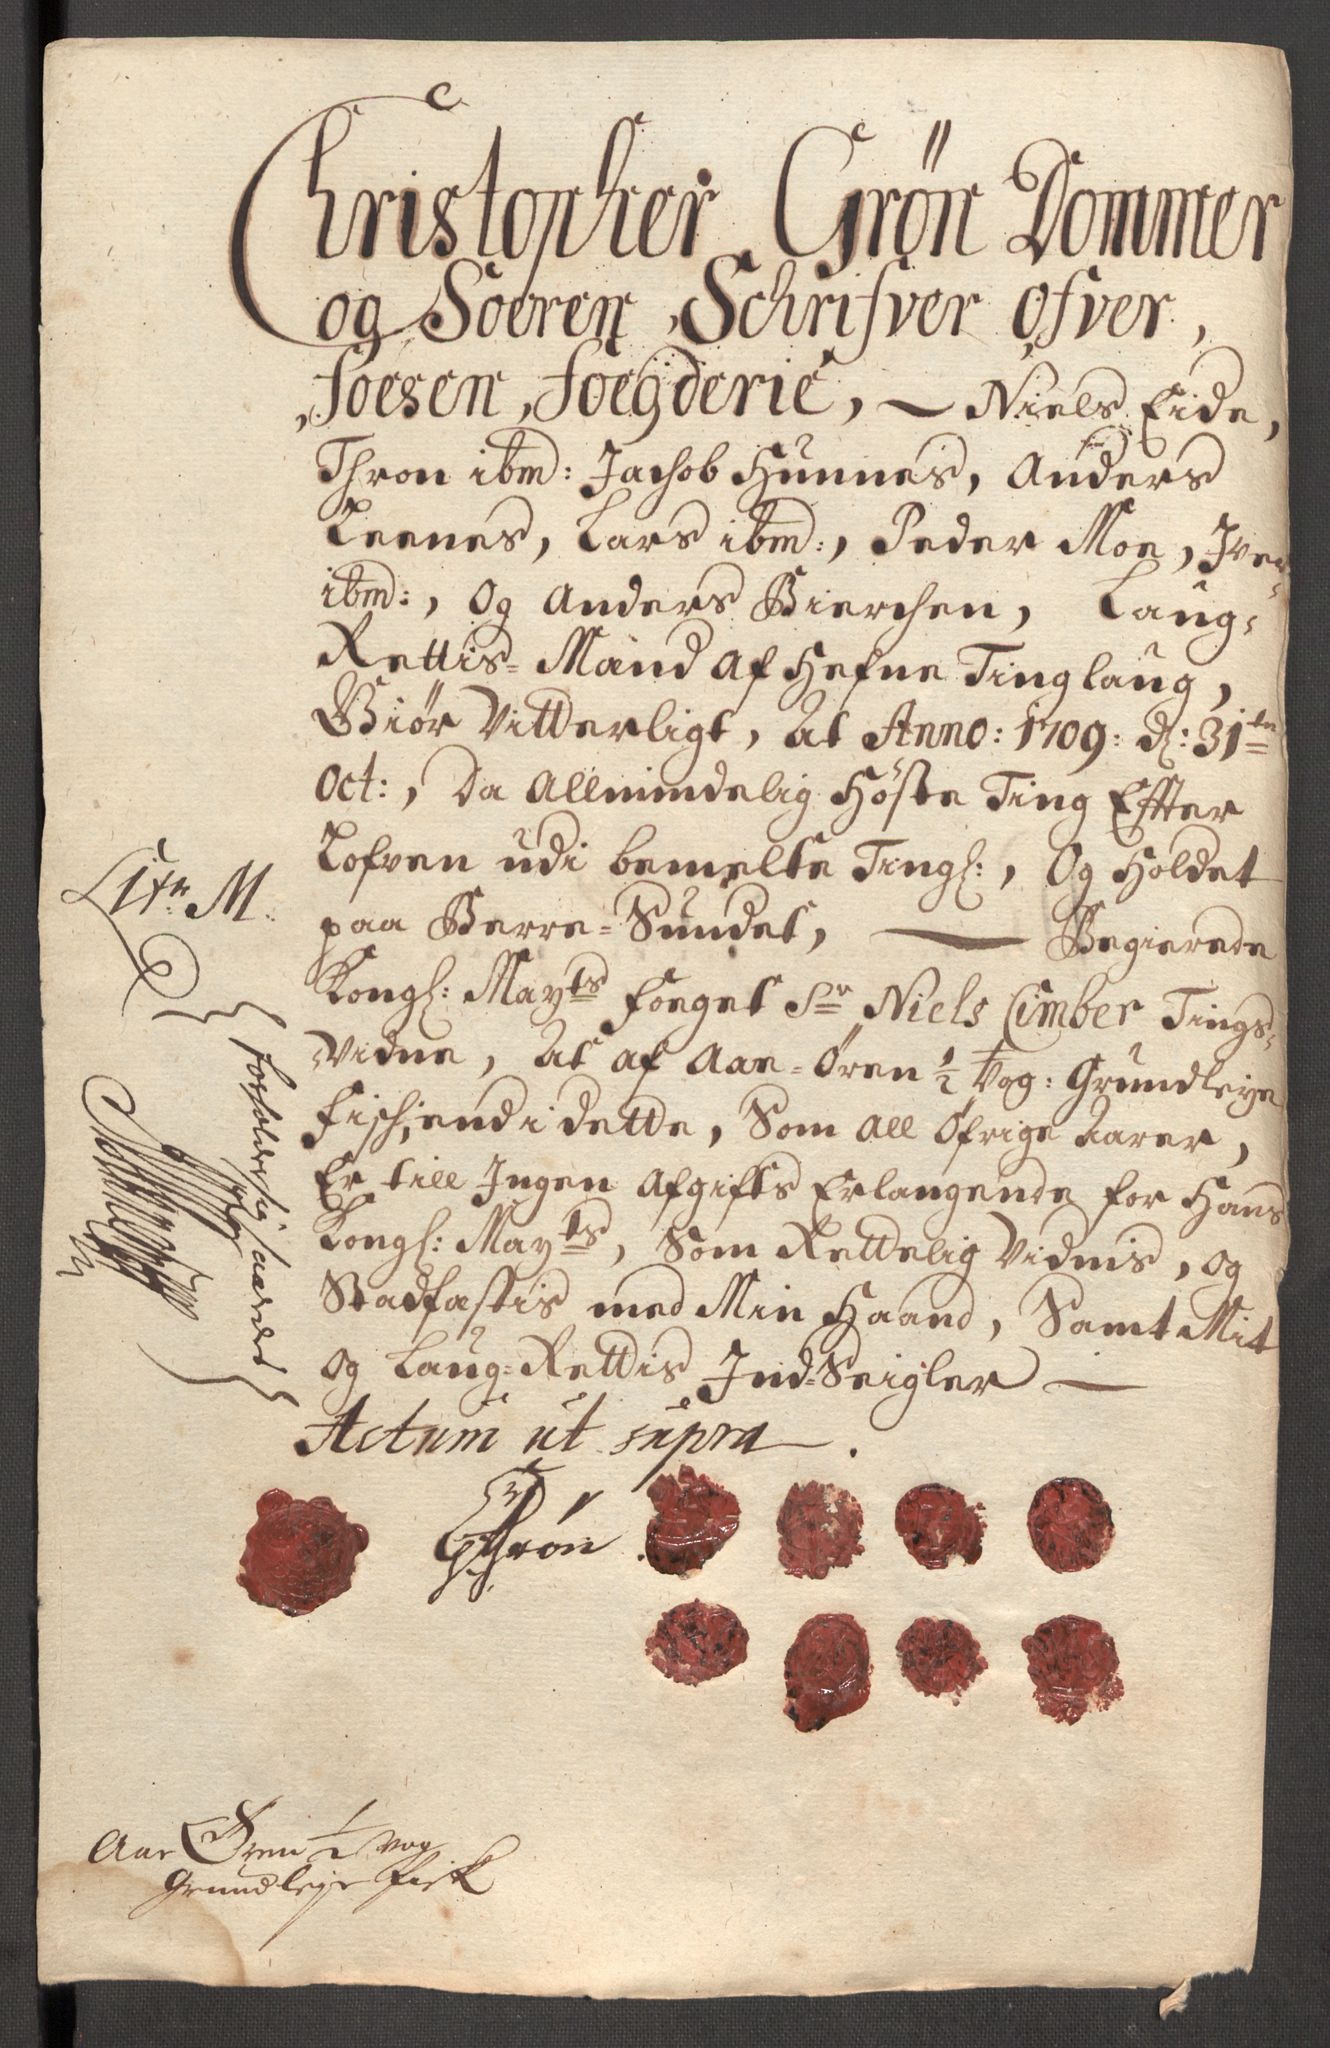 Christopher Grøn Dommer
og Soeren Schrifver ofver,
Foesen, Foegderie, — Niels Eide,
Thron ibm: Jachob Hunnes, Anders
Leenes, Lars ibm:, Peder Moe, Iver
ibm:, og Anders Bierchen, Laug-
Rettis-Mænd af Hefne Tinglaug,
Giør Vitterligt, at Anno: 1709: d: 31te
Oct:, Da Allmindelig Høste Ting Effter
Lofven udi bemelte Tingl:, og Holdet
paa Berre-Sundet, — Begierede
Kongl: Mayts foeget Sr Niels Cimber Tings-
Vidne, At af Aae-Øren ½ Vog: Grundleye
fisch, end i dette, Som all øfrige Aarer,
Er till Ingen Afgifts Erlangende for Hans
Kongl: Mayts, Som Rettelig Vidnis, og
Stadfæstis med Min Haand, Samt Mit
og Laug-Rettis Ind-Seigler —
Actum ut supra.
CGrøn
Litr: M:
forholder sig saaledes
Aae Øren ½ vog
Grundleye fisk